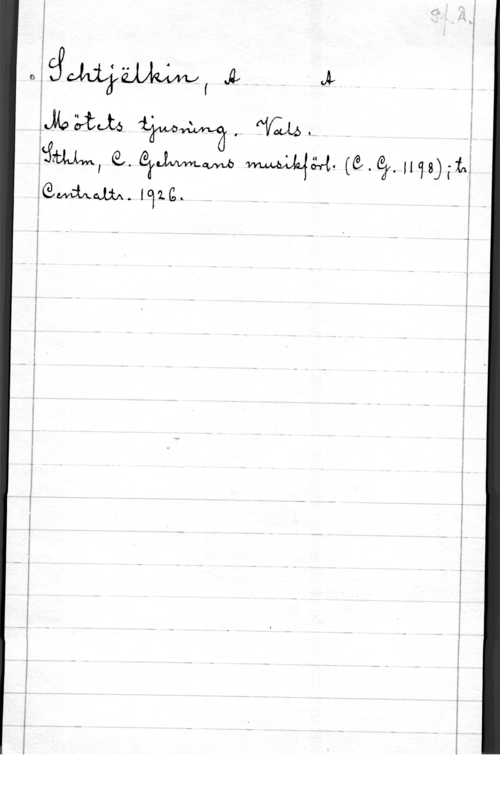 Schtjëlkin, A A
Mötets tjusning. Vals.
Sthlm, C. Gehrmans musikförl. (C. G. 1198); tr
Centraltr. 1926.